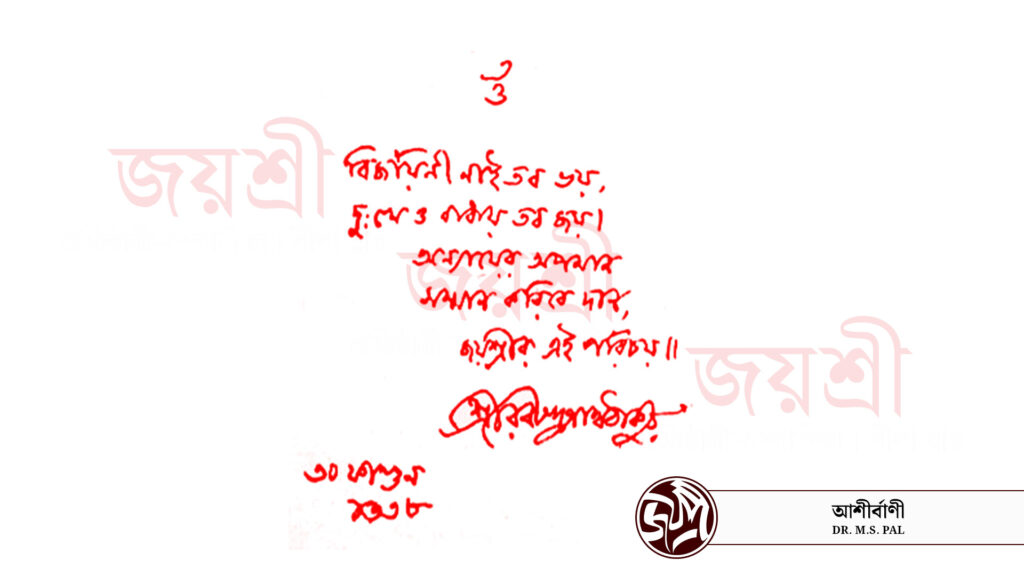 ওঁ
বিজয়িনী নাই তব ভয়,
দুঃখে ও বাধায় তব জয়।
অন্যায়ের অপমান
সম্মান করিবে দান,
জয়শ্রীর এই পরিচয়॥
শ্রীরবীন্দ্রনাথ ঠাকুর
৩০ ফাল্গুন
১৩৩৮
জয়শ্রী
জয়শ্রী
জয়শ্রী
জয়শ্রী
আশীর্বাণী
DR. M.S. PAL